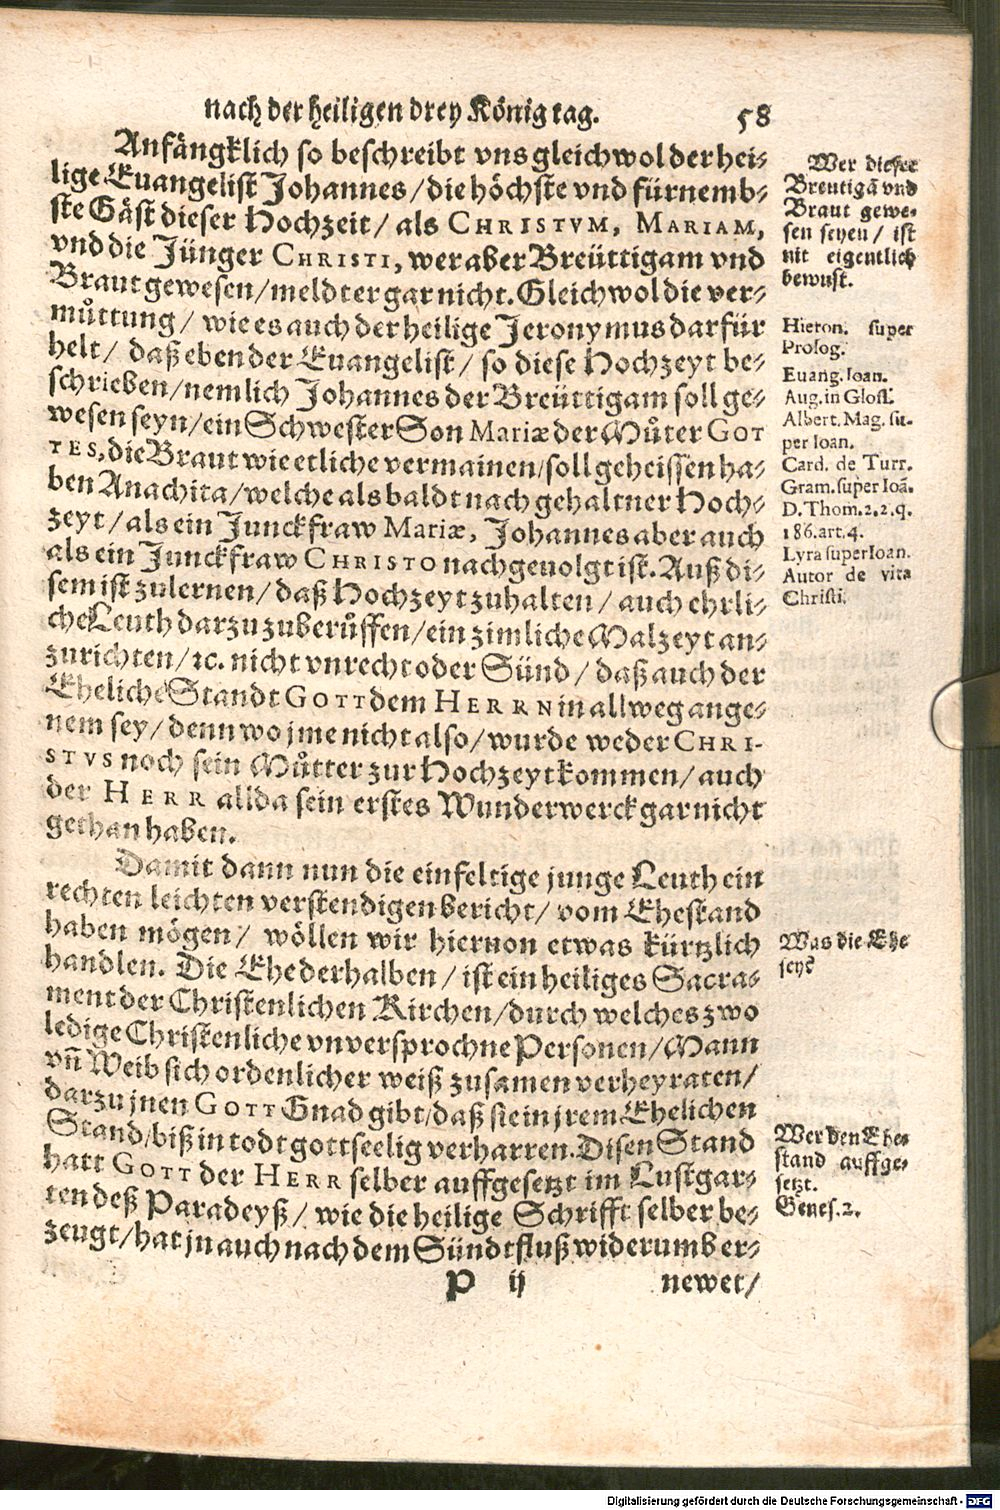 nach der heiligen drey König tag. 58
Anfängklich so beschreibt vns gleichwol der hei-
lige Euangelist Johannes / die höchste vnd fürnemb-
ste Gäst dieser Hochzeit / als CHRISTVM, MARIAM,
vnd die Jünger CHRISTI, wer aber Breüttigam vnd
Braut gewesen / meldt er gar nicht. Gleichwol die ver-
můttung / wie es auch der heilige Jeronymus darfür
helt / daß eben der Euangelist / so diese Hochzeyt be-
schrieben / nemlich Johannes der Breüttigam soll ge-
wesen seyn / ein Schwester Son Mariæ der Můter GOT
TES, die Braut wie etliche vermainen / soll geheissen ha-
ben Anachita / welche als baldt nach gehaltner Hoch-
zeyt / als ein Junckfraw Mariæ, Johannes aber auch
als ein Junckfraw CHRISTO nachgeuolgt ist. Auß di-
sem ist zulernen / daß Hochzeyt zuhalten / auch ehrli-
che Leuth darzu zuberůffen / ein zimliche Malzeyt an-
zurichten / ꝛc. nicht vnrecht oder Sünd / daß auch der
Eheliche Standt GOTT dem HERRN in allweg ange-
nem sey / denn wo jme nicht also / wurde weder CHRI-
STVS noch sein Můtter zur Hochzeyt kommen / auch
der HERR allda sein erstes Wunderwerck gar nicht
gethan haben.
Damit dann nun die einfeltige junge Leuth ein
rechten leichten verstendigen bericht / vom Ehestand
haben mögen / wöllen wir hieruon etwas kürtzlich
handlen. Die Ehe derhalben / ist ein heiliges Sacra-
ment der Christenlichen Kirchen / durch welches zwo
ledige Christenliche vnversprochne Personen / Mann
vñ Weib sich ordenlicher weiß zusamen verheyraten /
darzu jnen GOTT Gnad gibt / daß sie in jrem Ehelichen
Stand / biß in todt gottseelig verharren. Disen Stand
hatt GOTT der HERR selber auffgesetzt im Lustgar-
ten deß Paradeyß / wie die heilige Schrifft selber be-
zeugt / hat jn auch nach dem Sündtfluß widerumb er-
P ij newet /
Wer dieser
Breutigã vnd
Braut gewe-
sen seyen / ist
nit eigentlich
bewust.
Hieron. super
Prolog.
Euang. Ioan.
Aug. in Glosl.
Albert. Mag. su-
per Ioan.
Card. de Turr.
Gram. super Ioã.
D. Thom. 2.2.q.
186.art.4.
Lyra super Ioan.
Autor de vita
Christi.
Was die Ehe
sey?
Wer den Ehe-
stand auffge-
setzt.
Genes. 2.
Digitalisierung gefördert durch die Deutsche Forschungsgemeinschaft - DFG